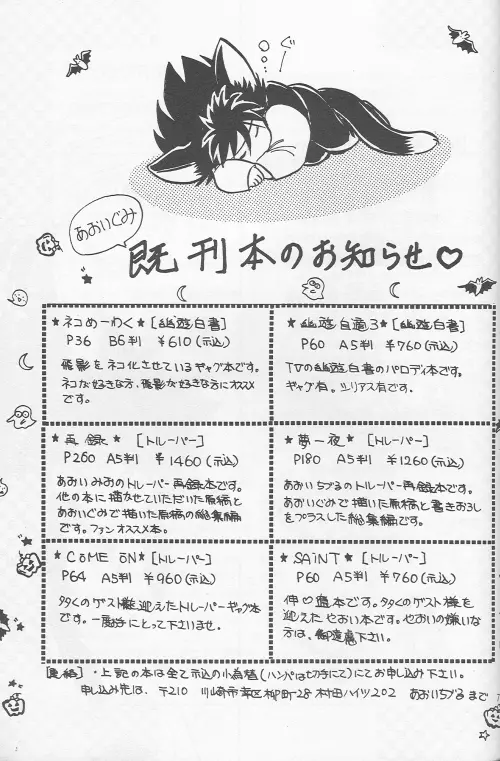 ぐー
あおいぐみ
既刊本のお知らせ♡
★ネコめーわく★[幽遊白書]
P36 B5判 ¥610(〒込)
飛影をネコ化させているギャグ本です。
ネコが好きな方、飛影が好きな方にオススメ
です。
★幽遊自適3★[幽遊白書]
P60 A5判 ¥760(〒込)
TVの幽遊白書のパロディ本です。
ギャグ有。シリアス有です。
★再録★[トルーパー]
P260 A5判 ¥1460(〒込)
あおいみおのトルーパー再録本です。
他の本に描かせていただいた原稿と
あおいぐみで描いた原稿の総集編
です。ファンオススメ本。
★夢一夜★[トルーパー]
P180 A5判 ¥1260(〒込)
あおいちづるのトルーパー再録本です。
あおいぐみで描いた原稿と書きおろし
をプラスした総集編です。
★COME ON★[トルーパー]
P64 A5判 ¥960(〒込)
多くのゲスト様を迎えたトルーパーギャグ本
です。一度手にとって下さいませ。
★SAINT★[トルーパー]
P60 A5判 ¥760(〒込)
伸♡当本です。多くのゲスト様を
迎えたやおい本です。やおいの嫌いな
方は、御遠慮下さい。
・上記の本は全て〒込の小為替(ハンパは切手にて)にてお申し込み下さい。
申し込み先は、〒210 川崎市幸区柳町28 村田ハイツ202 あおいちづる まで